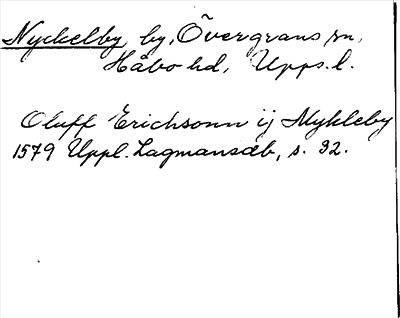 Nyckelby by, Övergrans sn,
Håbo hd, Upps. l.
Oluff Erichsonn ij Nykleby
1579 Uppl. Lagmansdb, s. 32.